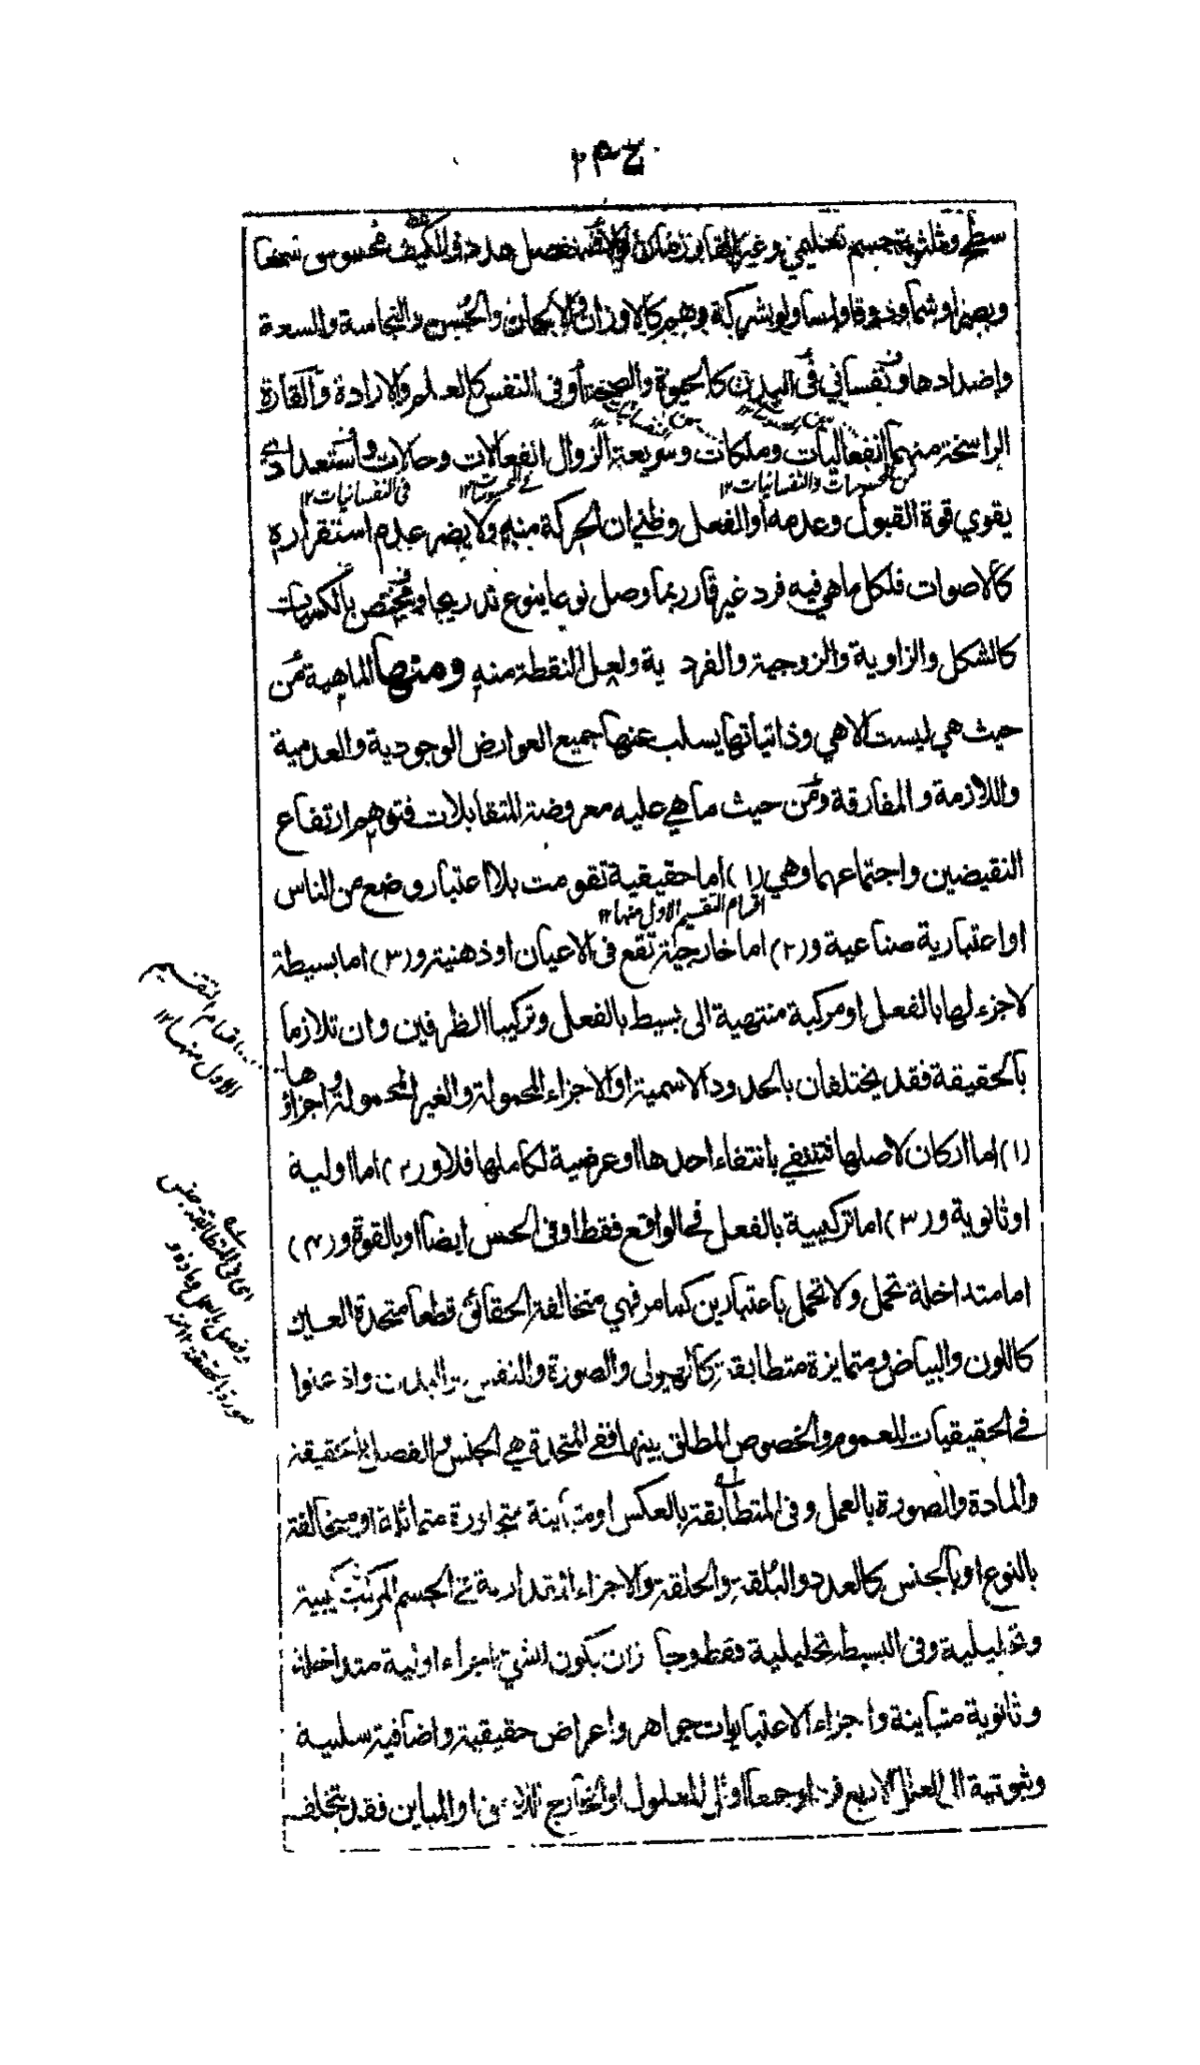 سطح وثلثة جسم تعليمي وغير القار زمان والا فمنفصل عدد والكيف محسوس سمعا
وبصرا وشما وذوقا ولمسا ولو بشركة وهم كالاوزان والالحان والحسن والنجاسة والسعة
واضدادها ونفساني في البدن كالحيوة والصحة او في النفس كالعلم والارادة والقدرة
الراسخة منهما انفعاليات وملكات وسريعة الزوال انفعالات وحالات واستعدادي
من المحسوسات والنفسانيات ١٢ في المحسوسات ١٢ في النفسانيات ١٢
يقوي قوة القبول وعدمه او الفعل وظني ان الحركة منه ولا يضر عدم استقراره
كالاصوات فلكل ما هي فيه فرد غير قار ربما وصل نوعا بنوع تدريجا ومختص بالكميات
كالشكل والزاوية والزوجية والفردية ولعل النقطة منه ومنها الماهية من
حيث هي ليست الا هي وذاتياتها يسلب عنها جميع العوارض الوجودية والعدمية
واللازمة والمفارقة ومن حيث ما هي عليه معروضة للمتقابلات فتوهم ارتفاع
النقيضين واجتماعهما وهي (١) اما حقيقية تقومت بلا اعتبار وضع من الناس
اقسام التقسيم الاول منها ١٢
او اعتبارية صناعية و(٢) اما خارجية تقع في الاعيان او ذهنية و(٣) اما بسيطة
لا جزء لها بالفعل او مركبة منتهية الى بسيط بالفعل وتركيبا الظرفين وان تلازما
بالحقيقة فقد يختلفان بالحدود الاسمية او الاجزاء المحمولة والغير المحمولة واجزاؤها
(١) اما اركان لاصلها فتنتفي بانتفاء احدها او عرضية لكاملها فلا و(٢) اما اولية
او ثانوية و(٣) اما تركيبية بالفعل في الواقع فقط او في الحس ايضا او بالقوة و(٤)
اما متداخلة تحمل ولا تحمل باعتبارين كما مر فهي متخالفة الحقائق قطعا متحدة العين
كاللون والبياض ومتمايزة متطابقة كالهيولى والصورة والنفس والبدن واذ عنوا
في الحقيقيات العموم والخصوص المطلق بينها ففي المتحدة هي الجنس والفصل بالحقيقة
والمادة والصورة بالعمل وفي المتطابقة بالعكس او متباينة متجاورة متماثلة او متخالفة
بالنوع او بالجنس كالعدد والبلقة والخلقة والاجزاء المقدارية في الجسم المركب تركيبية
وتحليلية وفي البسيط تحليلية فقط وجاز ان يكون لشيء اجزاء اولية متداخلة
وثانوية متباينة واجزاء الاعتباريات جواهر واعراض حقيقية واضافية سلبية
وثبوتية الى العلل الاربع او جمعا او الى المعلول او الخارج او المباين فقد يتخلف
اقسام التقسيم
الاول منها ١٢
اي في المتطابقة جنس
وفصل بالعمل ومادة و
صورة بالحقيقة ١٢ منه